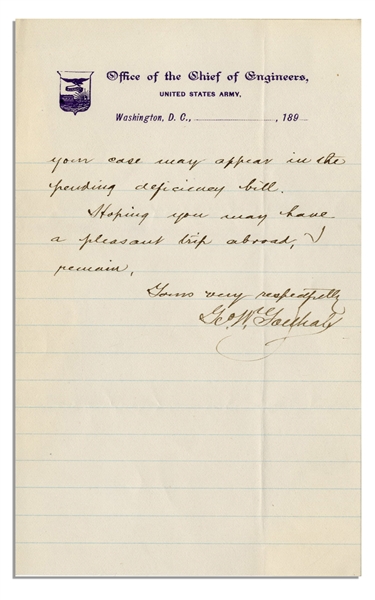 Office of the Chief of Engineers,
UNITED STATES ARMY,
Washington, D. C., , 189
your case may appear in the
pending deficiency bill.
Hoping you may have
a pleasant trip abroad, I
remain,
Yours very respectfully
Geo W. Goethals